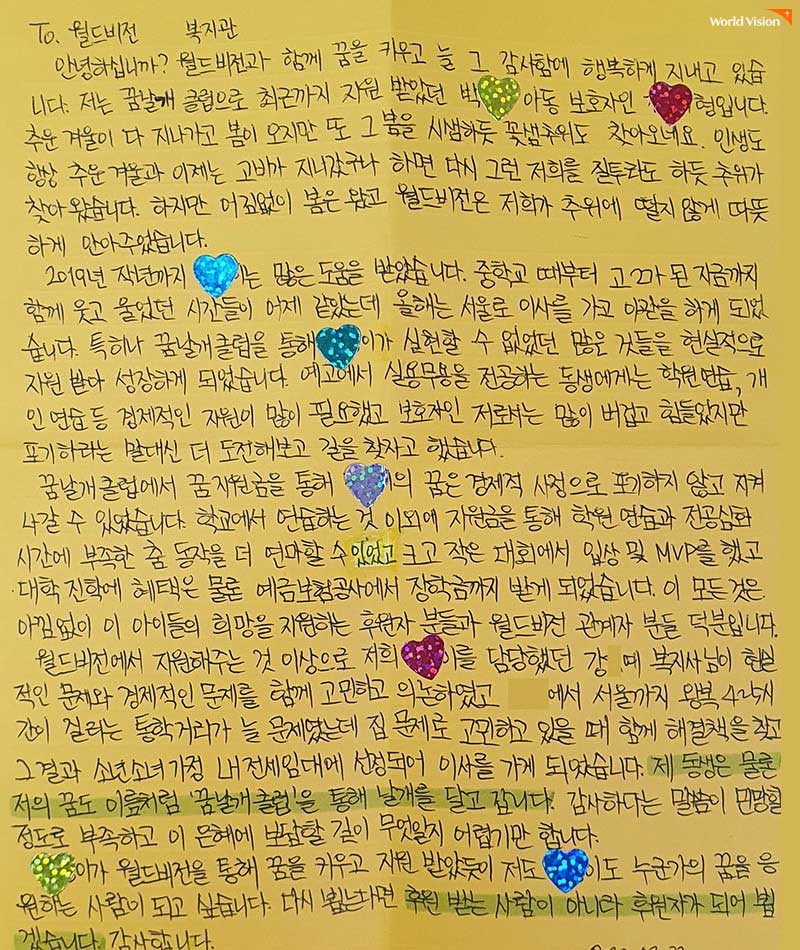 World Vision
To. 월드비전 복지관
안녕하십니까? 월드비전과 함께 꿈을 키우고 늘 그 감사함에 행복하게 지내고 있습
니다. 저는 꿈날개 클럽으로 최근까지 지원 받았던 박 아동 보호자인 형입니다.
추운 겨울이 다 지나가고 봄이 오지만 또 그 봄을 시샘하듯 꽃샘추위도 찾아오네요. 인생도
항상 추운 겨울과 이제는 고비가 지나갔구나 하면 다시 그런 저희를 질투라도 하듯 추위가
찾아 왔습니다. 하지만 어김없이 봄은 왔고 월드비전은 저희가 추위에 떨지 않게 따뜻
하게 안아주었습니다.
2019년 작년까지 는 많은 도움을 받았습니다. 중학교 때부터 고2가 된 지금까지
함께 웃고 울었던 시간들이 어제 같았는데 올해는 서울로 이사를 가고 이관을 하게 되었
습니다. 특히나 꿈날개클럽을 통해 이가 실현할 수 없었던 많은 것들을 현실적으로
지원 받아 성장하게 되었습니다. 예고에서 실용무용을 전공하는 동생에게는 학원연습, 개
인 연습 등 경제적인 자원이 많이 필요했고 보호자인 저로서는 많이 버겁고 힘들었지만
포기하라는 말대신 더 도전해보고 길을 찾자고 했습니다.
꿈날개클럽에서 꿈지원금을 통해 의 꿈은 경제적 사정으로 포기하지 않고 지켜
나갈 수 있었습니다. 학교에서 연습하는 것 이외에 지원금을 통해 학원 연습과 전공심화
시간에 부족한 춤 동작을 더 연마할 수 있었고 크고 작은 대회에서 입상 및 MVP를 했고
대학 진학에 혜택은 물론 예금보험공사에서 장학금까지 받게 되었습니다. 이 모든것은
아낌없이 이 아이들의 희망을 지원하는 후원자 분들과 월드비전 관계자 분들 덕분입니다.
월드비전에서 지원해주는 것 이상으로 저희 이를 담당했던 강 예 복지사님이 현실
적인 문제와 경제적인 문제를 함께 고민하고 의논하였고 에서 서울까지 왕복 4~5시
간이 걸리는 통학거리가 늘 문제였는데 집 문제로 고민하고 있을 때 함께 해결책을 찾고
그 결과 소년소녀가정 LH전세임대에 선정되어 이사를 가게 되었습니다. 제 동생은 물론
저의 꿈도 이름처럼 '꿈날개클럽'을 통해 날개를 달고 갑니다. 감사하다는 말씀이 민망할
정도로 부족하고 이 은혜에 보답할 길이 무엇일지 어렵기만 합니다.
아가 월드비전을 통해 꿈을 키우고 지원 받았듯이 저도 이도 누군가의 꿈을 응
원하는 사람이 되고 싶습니다. 다시 뵙는다면 후원 받는 사람이 아니라 후원자가 되어 뵙
겠습니다. 감사합니다.